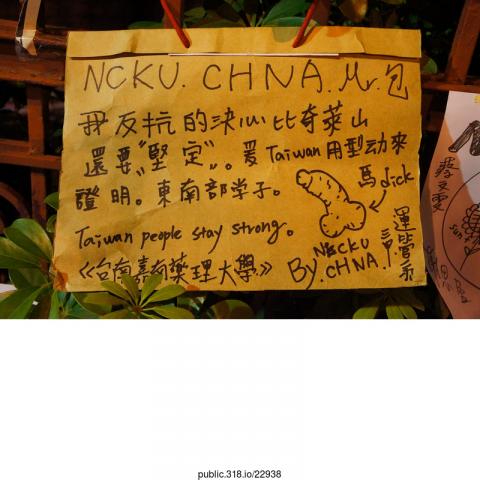 NCKU. CHNA. Mr.包
我反抗的決心比奇萊山
還要"堅定"。愛Taiwan用型动來
證明。東南部学子。
馬dick
Taiwan people stay strong。
《台南嘉南藥理大學》
By. NCKU CHNA.
運管系
public.318.io/22938